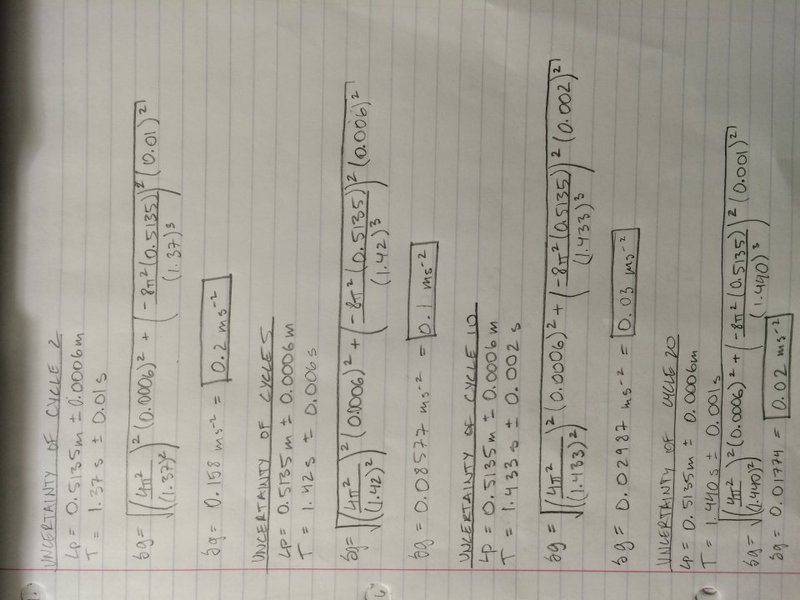 UNCERTAINTY OF CYCLE 2
Lp = 0.5135m ± 0.0006m
T = 1.37s ± 0.01s
δg = √((4π²/(1.37)²)²(0.0006)² + (-8π²(0.5135)/(1.37)³)²(0.01)²)
δg = 0.158 ms⁻² = 0.2 ms⁻²
UNCERTAINTY OF CYCLE 5
Lp = 0.5135m ± 0.0006m
T = 1.42s ± 0.006s
δg = √((4π²/(1.42)²)²(0.0006)² + (-8π²(0.5135)/(1.42)³)²(0.006)²)
δg = 0.08577 ms⁻² = 0.1 ms⁻²
UNCERTAINTY OF CYCLE 10
Lp = 0.5135m ± 0.0006m
T = 1.433s ± 0.002s
δg = √((4π²/(1.433)²)²(0.0006)² + (-8π²(0.5135)/(1.433)³)²(0.002)²)
δg = 0.02987 ms⁻² = 0.03 ms⁻²
UNCERTAINTY OF CYCLE 20
Lp = 0.5135m ± 0.0006m
T = 1.440s ± 0.001s
δg = √((4π²/(1.440)²)²(0.0006)² + (-8π²(0.5135)/(1.440)³)²(0.001)²)
δg = 0.01774 = 0.02 ms⁻²